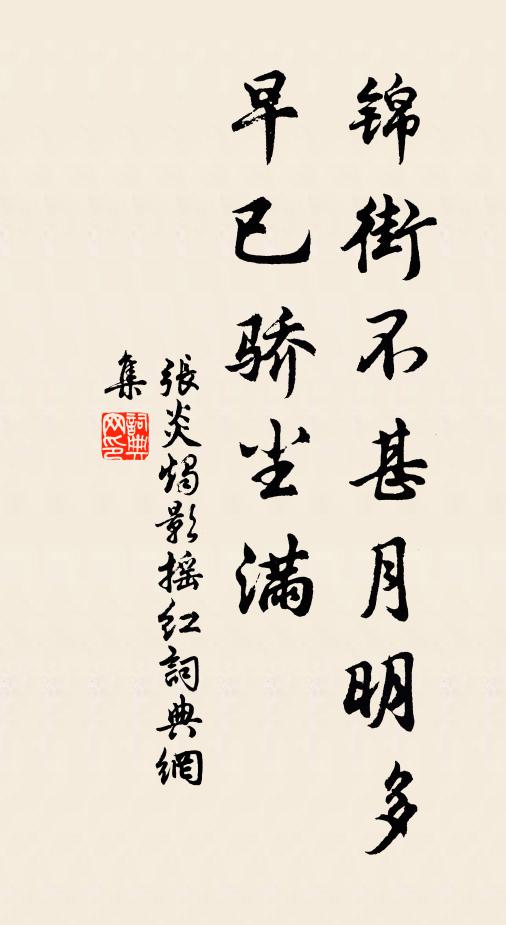 锦街不甚月明多
早已骄尘满
張炎燭影摇红詞典網
集
詞典网印